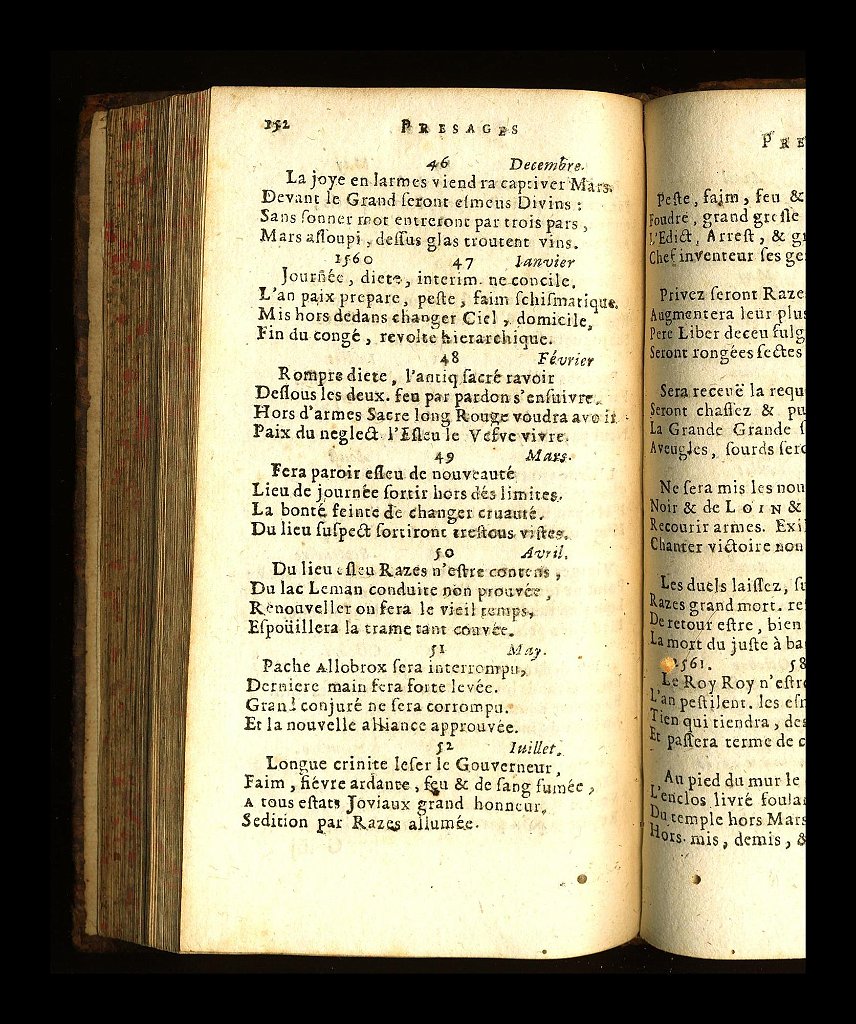 152 PRESAGES
46 Decembre.
La joye en larmes viendra captiver Mars.
Devant le Grand ſeront eſmeus Divins :
Sans ſonner mot entreront par trois pars ,
Mars aſſoupi , deſſus glas troutent vins.
1560 47 Ianvier
Journée , diete , interim. ne concile,
L'an paix prepare, peſte, faim ſchiſmatique.
Mis hors dedans changer Ciel , domicile,
Fin du congé , revolte hierarchique.
48 Février
Rompre diete , l'antiq ſacré ravoir
Deſſous les deux. feu par pardon s'enſuivre.
Hors d'armes Sacre long Rouge voudra avoir
Paix du neglect l'Eſleu le Veſve vivre.
49 Mars.
Fera paroir eſleu de nouveauté
Lieu de journée ſortir hors dés limites,
La bonté feinte de changer cruauté.
Du lieu ſuſpect ſortiront treſtous viſtes.
50 Avril.
Du lieu eſleu Razes n'eſtre contens ,
Du lac Leman conduite non prouvée ,
Renouveller on fera le vieil temps,
Eſpoüillera la trame tant couvée.
51 May.
Pache Allobrox ſera interrompu,
Derniere main fera forte levée.
Grand conjuré ne ſera corrompu.
Et la nouvelle alliance approuvée.
52 Iuillet.
Longue crinite leſer le Gouverneur ,
Faim , fiévre ardante , feu & de ſang fumée ,
A tous eſtats Joviaux grand honneur,
Sedition par Razes allumée.
PRE
Peſte, faim , feu &
Foudre , grand greſle
L'Edict, Arreſt , & g
Chef inventeur ſes ge
Privez ſeront Raze
Augmentera leur plus
Pere Liber deceu fulg
Seront rongées ſectes
Sera receuë la requ
Seront chaſſez & pu
La Grande Grande ſ
Aveugles, ſourds ſero
Ne ſera mis les nou
Noir & de LOIN &
Recourir armes. Exil
Chanter victoire non
Les duels laiſſez, ſu
Razes grand mort. re
De retour eſtre , bien
La mort du juſte à ba
1561. 58
Le Roy Roy n'eſtre
L'an peſtilent. les eſm
Tien qui tiendra , des
Et paſſera terme de c
Au pied du mur le
L'enclos livré foula
Du temple hors Mars
Hors mis , demis , &